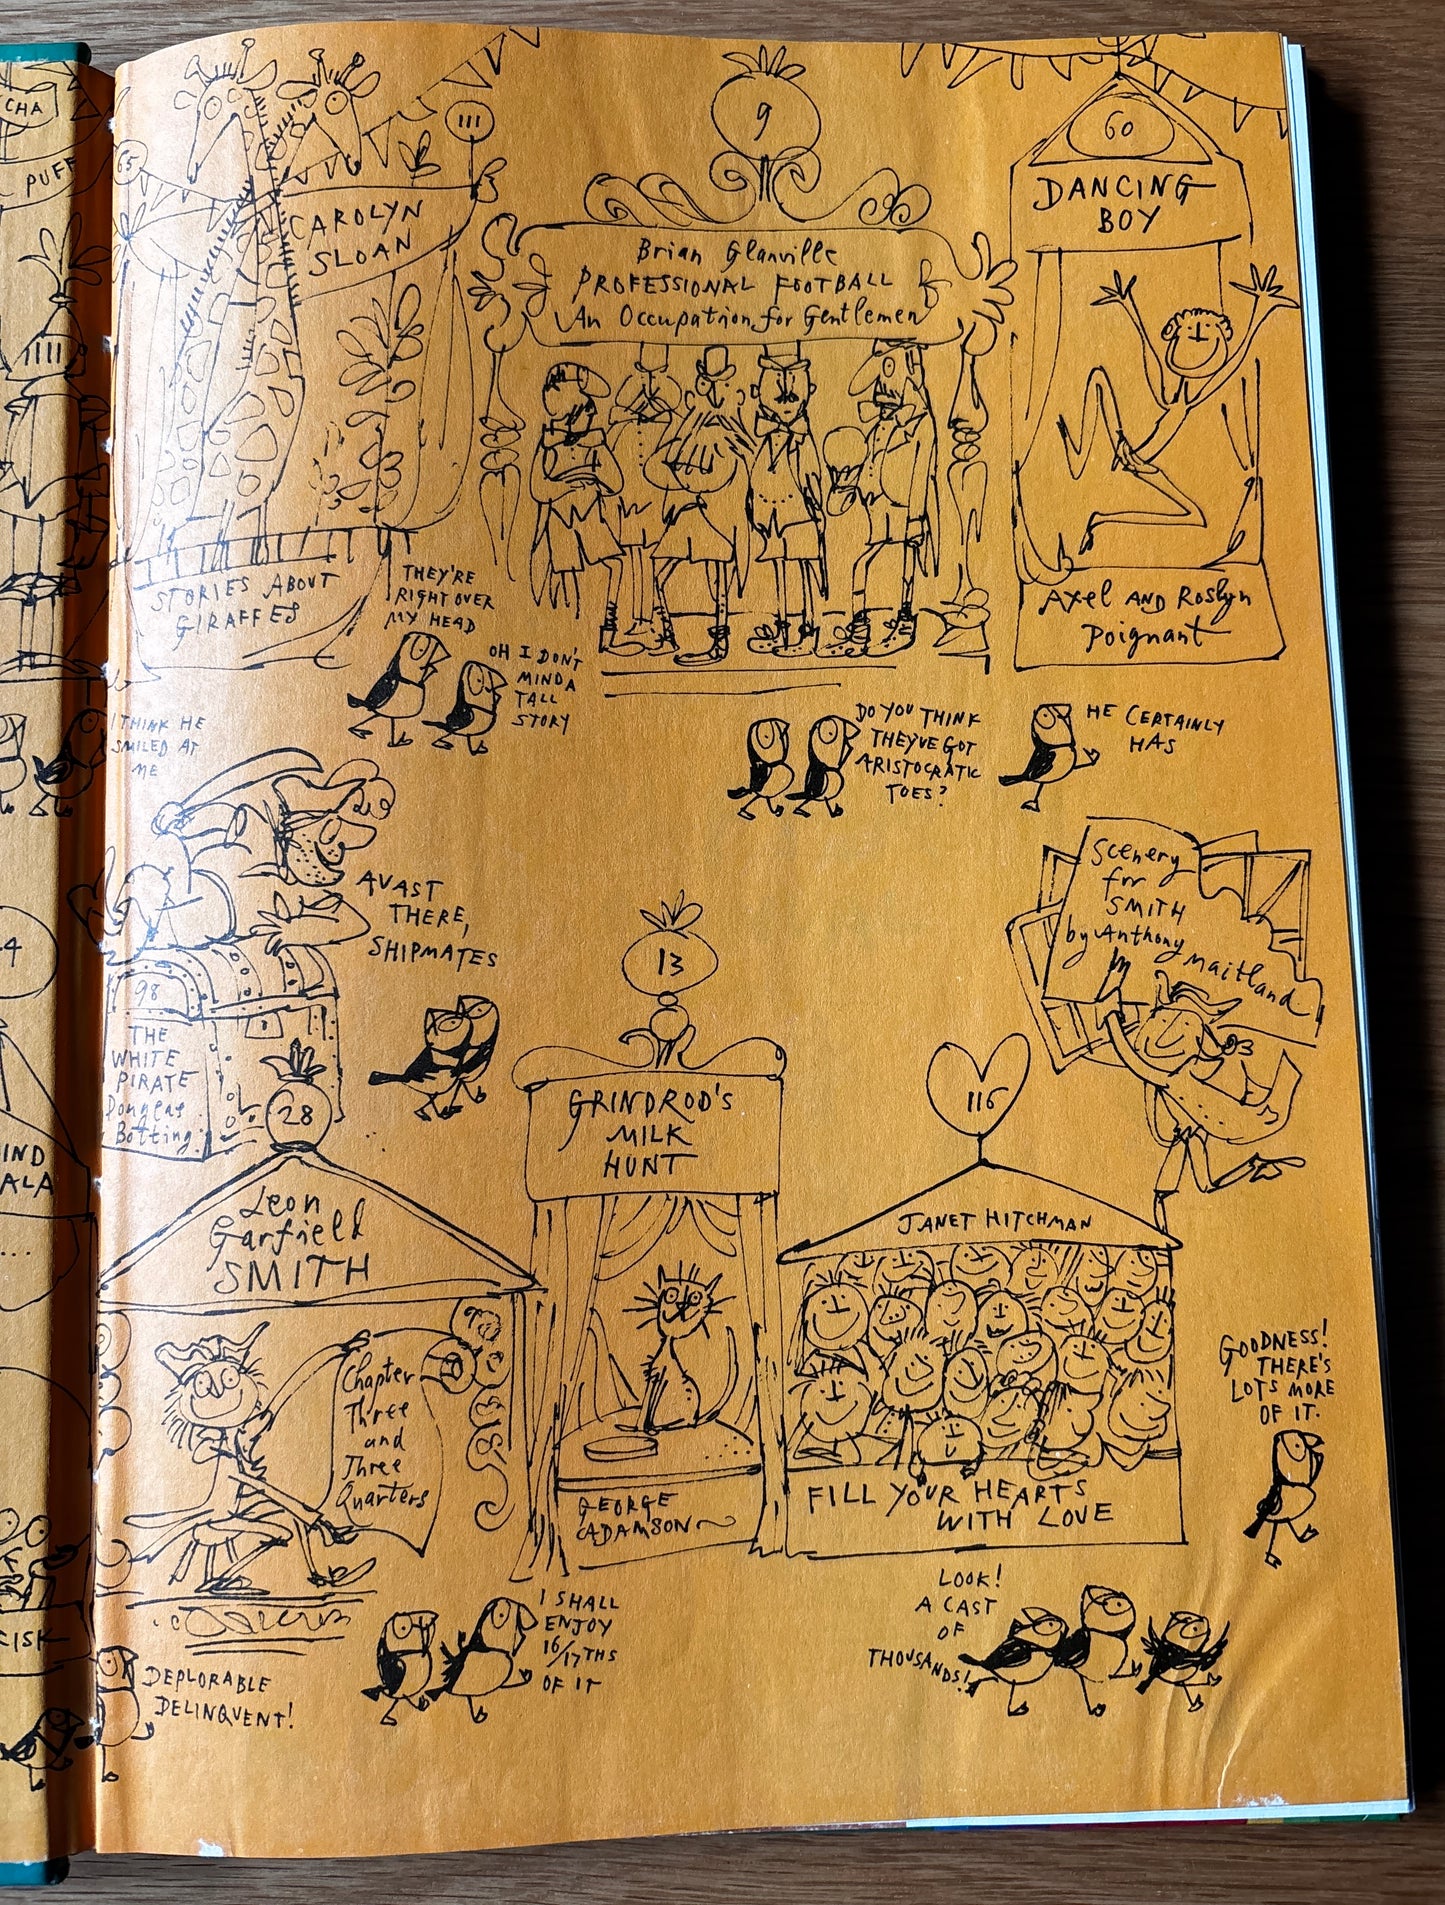 CHA
PUFF
65
111
CAROLYN
SLOAN
STORIES ABOUT
GIRAFFES
THEY'RE
RIGHT OVER
MY HEAD
OH I DON'T
MIND A
TALL
STORY
9
Brian Glanville
PROFESSIONAL FOOTBALL
An Occupation for Gentlemen
60
DANCING
BOY
AXel AND Roslyn
Poignant
DO YOU THINK
THEY'VE GOT
ARISTOCRATIC
TOES?
HE CERTAINLY
HAS
I THINK HE
SMILED AT
ME
AVAST
THERE,
SHIPMATES
98
THE
WHITE
PIRATE
Douglas
Botting
Scenery
for
SMITH
by Anthony
Maitland
4
IND
ALA
....
28
Leon
Garfield
SMITH
Chapter
Three
and
Three
Quarters
13
GRINDROD'S
MILK
HUNT
GEORGE
ADAMSON
116
JANET HITCHMAN
FILL YOUR HEARTS
WITH LOVE
GOODNESS!
THERE'S
LOTS MORE
OF IT.
CISK
DEPLORABLE
DELINQUENT!
I SHALL
ENJOY
16/17THS
OF IT
LOOK!
A CAST
OF
THOUSANDS!